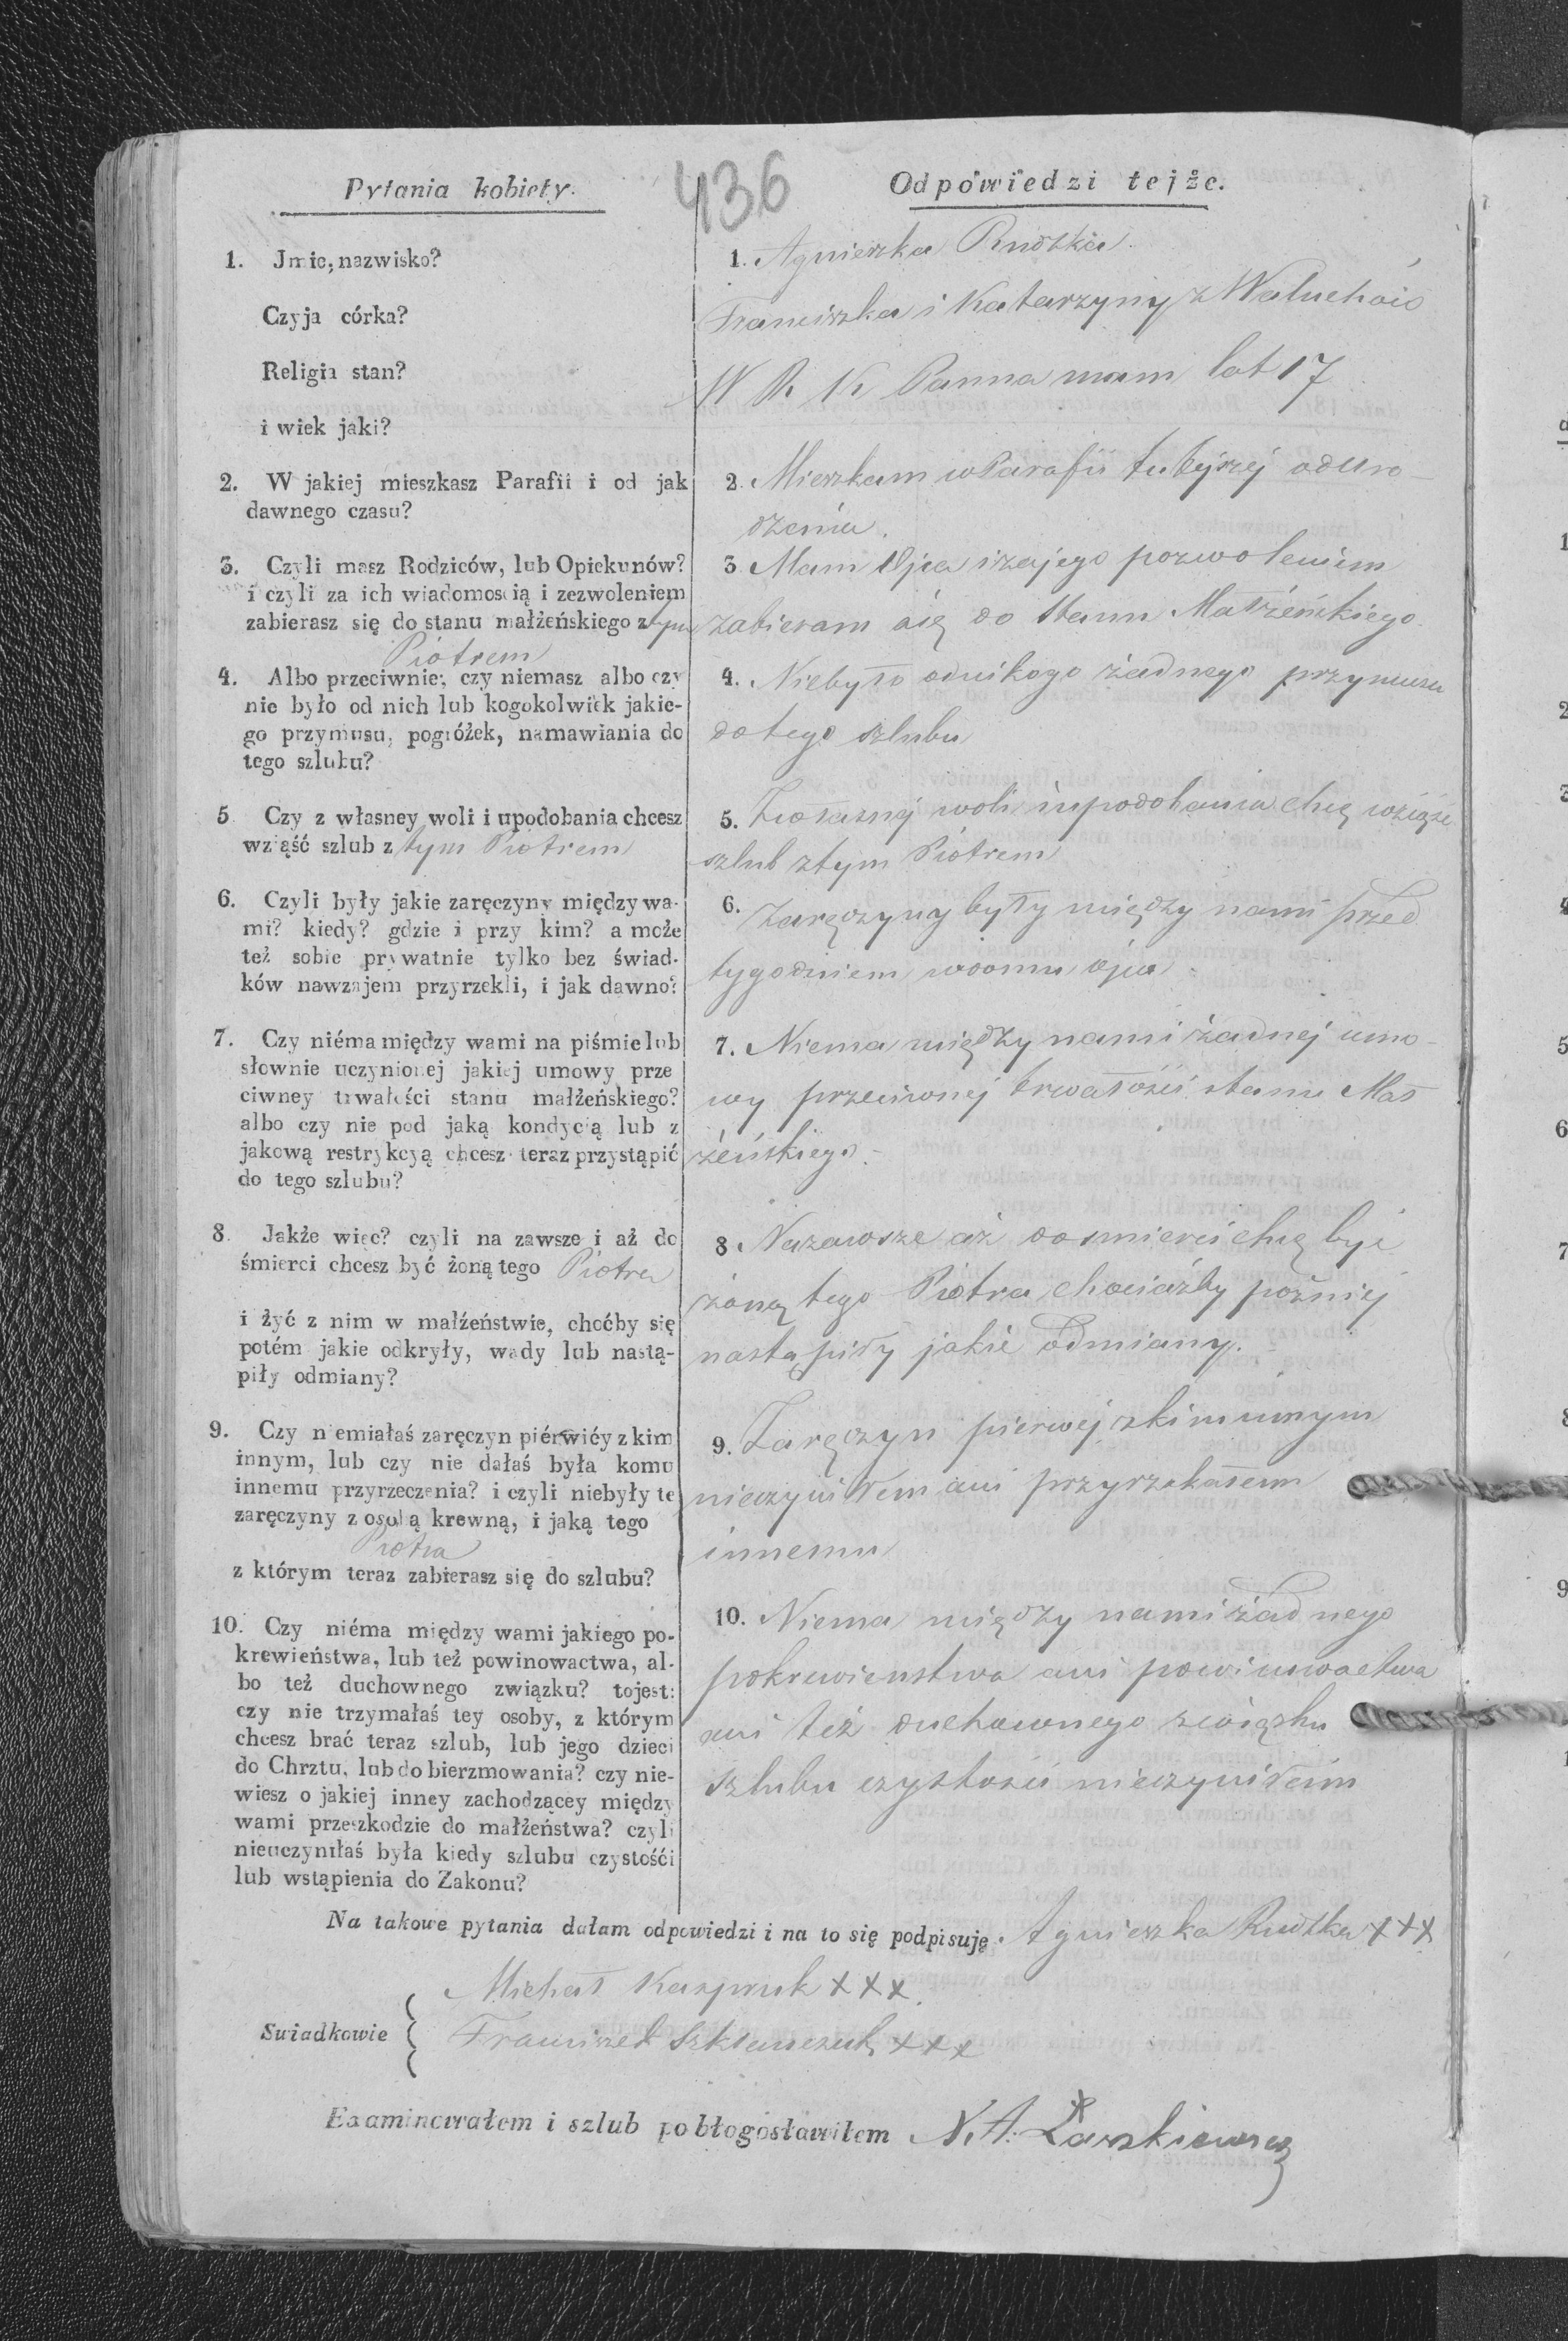 436
Pytania kobiety.
1. Jmie, nazwisko?
Czyja córka?
Religia stan?
i wiek jaki?
2. W jakiej mieszkasz Parafii i od jak
dawnego czasu?
3. Czyli masz Rodziców, lub Opiekunów?
i czyli za ich wiadomością i zezwoleniem
zabierasz się do stanu małżeńskiego z tym
Piotrem
4. Albo przeciwnie; czy niemasz albo czy
nie było od nich lub kogokolwiek jakie-
go przymusu, pogróżek, namawiania do
tego szlubu?
5 Czy z własney woli i upodobania chcesz
wziąść szlub z tym Piotrem
6. Czyli były jakie zaręczyny między wa-
mi? kiedy? gdzie i przy kim? a może
też sobie prywatnie tylko bez świad-
ków nawzajem przyrzekli, i jak dawno?
7. Czy niéma między wami na piśmie lub
słownie uczynionej jakiej umowy prze
ciwney trwałości stanu małżeńskiego?
albo czy nie pod jaką kondycią lub z
jakową restrykcyą chcesz teraz przystąpić
do tego szlubu?
8. Jakże więc? czyli na zawsze i aż do
śmierci chcesz być żoną tego Piotra
i żyć z nim w małżeństwie, choćby się
potém jakie odkryły, wady lub nastą-
piły odmiany?
9. Czy niemiałaś zaręczyn piérwiéy z kim
innym, lub czy nie dałaś była komu
innemu przyrzeczenia? i czyli niebyły te
zaręczyny z osobą krewną, i jaką tego
Piotra
z którym teraz zabierasz się do szlubu?
10. Czy niéma między wami jakiego po-
krewieństwa, lub też powinowactwa, al-
bo też duchownego związku? tojest:
czy nie trzymałaś tey osoby, z którym
chcesz brać teraz szlub, lub jego dzieci
do Chrztu, lub do bierzmowania? czy nie-
wiesz o jakiej inney zachodzącey między
wami przeszkodzie do małżeństwa? czyli
nieuczyniłaś była kiedy szlubu czystośći
lub wstąpienia do Zakonu?
Odpowiedzi tejże.
1. Agnieszka Rudzka
Franciszka i Katarzyny z Waluchów
W R K Panna mam lat 17
2. Mieszkam w Parafii tutejszej od uro-
dzenia.
3 Mam Ojca i za jego pozwoleniem
zabieram się do stanu Małżeńskiego.
4. Niebyło od nikogo żadnego przymusu
do tego szlubu
5. Z własnej woli i upodobania chcę wziąść
szlub z tym Piotrem
6. Zaręczyny były między nami przed
tygodniem w domu ojca
7. Niema między nami żadnej umo-
wy przeciwnej trwałości stanu Mał
żeńskiego.
8. Nazawsze aż do smierci chcę być
żoną tego Piotra chociażby poźniej
nastąpiły jakie odmiany.
9. Zaręczyn pierwej z kim innym
nieczyniłem ani przyrzekałem
innemu
10. Niema między nami żadnego
pokrewienstwa ani powinowactwa
ani też duchownego związku
szlubu czystości nieczyniłem
Na takowe pytania dałam odpowiedzi i na to się podpisuję. Agnieszka Rudzka XXX
Michał Kasprzuk XXX
Swiadkowie
Franciszek Szklanczuk XXX
Examinowałem i szlub pobłogosławiłem X. A. Ławskiewicz